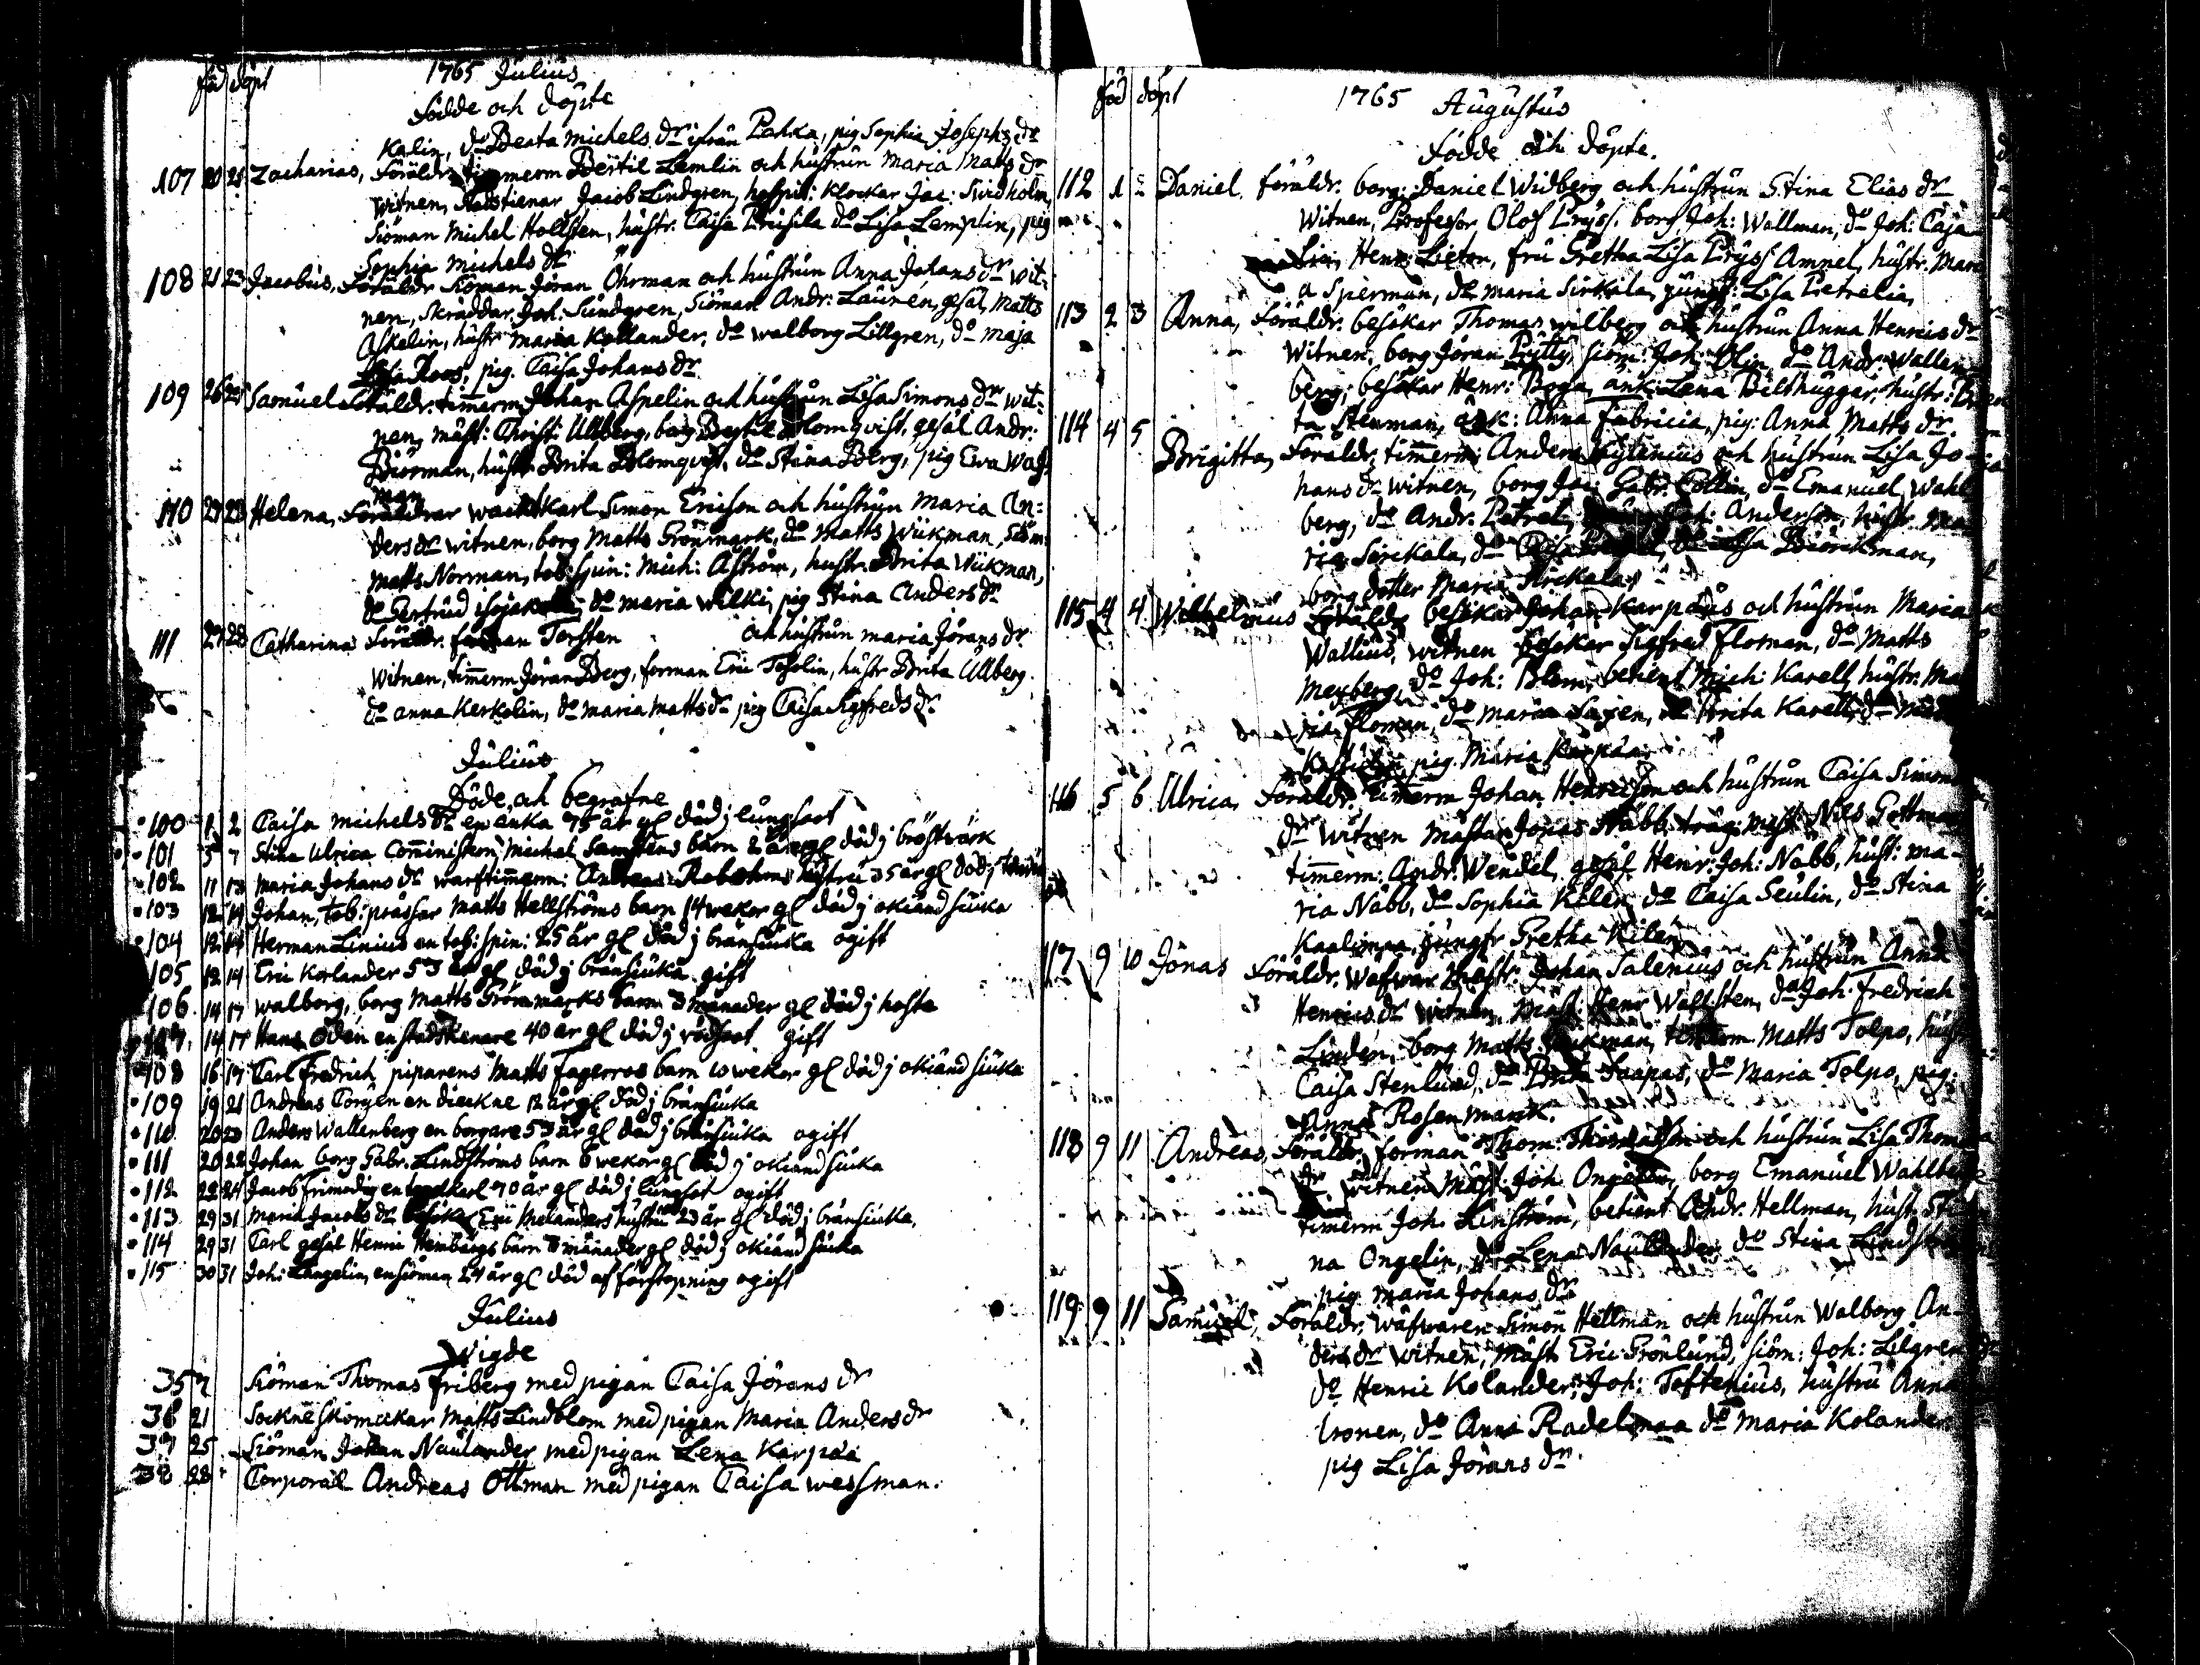 föd döpt 1765 Julius
Födde och döpte
Kalin, do Beata Michels dr ifrån Pahka, pig Sophia Josephs dr
107 20 21 Zacharias, Föräldr. timmerm Bertil Lemlin och hustrun Maria Matts dr
witnen, Jacob Lindgren, hospit: klockar Jac: Svidholm,
Siöman Michel Hollsten, hustr. Caisa Prisila do Lisa Lemplin, pig
Sophia Michels dr
108 21 23 Jacobus, Föräldr Siöman Jöran Öhrman och hustrun Anna Johans dr wit:
nen, Skräddar Joh: Sundgren, Siöman Andr: Laurén, gesäl Matts
Askelin, hustr Maria Kollander, do Walborg Lillgren, do Maja
Lisa Roos, pig. Caisa Johans dr
109 26 28 Samuel Föräldr. timmerm Johan Aspelin och hustrun Lisa Simons dr wit:
nen, mäst: Christ: Ullberg, borg Bertil Blomqvist, gesäl Andr:
Biörman, hustr Brita Blomqvist, do Stina Berg, pig Ewa Wass
man
110 27 28 Helena, Föräldrar wacktkarl Simon Ericson och hustrun Maria An:
ders dr witnen, borg Matts Grönmark, do Matts Wiikman, siöm:
Matts Norman, tob: spin: Mich: Åström, hustr. Brita Wiikman,
do Gertrud do Maria Wilki, pig Stina Anders dr
111 27 28 Catharina Föräldr. forman Torsten och hustrun Maria Jörans dr.
Witnen, timmerm Jöran Berg, forman Eric Tesolin, hustr Brita Ullberg.
do Anna Kerkolin, do Maria Matts dr pig Caisa Sigfreds dr
Julius
Döde och begrafne
100 1 2 Caisa Michels dr en enka 75 år gl död j lungsoot
101 5 7 Stina Ulrica Comministern Michel barn 2 år gl död j bröstwärk
102 11 13 Maria Johans dr warftimmerm: Andreas hustru 35 år gl död j
103 12 14 Johan, tob: prässar Matts Hellströms barn 14 wekor gl död j okiänd siuka
104 12 14 Herman Linius en tob: spin: 25 år gl död j bränsiuka ogift
105 12 14 Eric Korlander 53 år gl död j bränsiuka gift
106 14 17 Walborg, borg Matts Grönmarks barn 3 månader gl död j hosta
107 14 17 Hans Oden en stadstienare 40 år gl död j rödsoot gift
108 16 17 Carl Fredrich piparens Matts Fagerroos barn 10 wekor gl död j okiänd siuka
109 19 21 Andreas Torgen en dieckne 12 år gl död j bränsiuka
110 20 20 Anders Wallenberg en borgare 53 år gl död j bränsiuka ogift
111 20 22 Johan borg Gabr. Lindströms barn 6 wekor gl död j okiänd siuka
112 22 24 Jacob Frimodig en 70 år gl död j lungsot ogift
113 29 31 Maria Jacobs dr besökar Eric Melanders hustru 23 år gl död j bränsiuka,
114 29 31 Carl gesäl Henric Hembärgs barn 3 månader gl död j okiänd siuka
115 30 31 Joh: Langelin, en siöman 24 år gl död af förstopning ogift
Julius
Wigde
35 7 Siöman Thomas Friberg med pigan Caisa Jörans dr
36 21 Sockne skomakar Matts Lindblom med pigan Maria Anders dr
37 25 Siöman Johan Naulander med pigan Lena Karpaa
38 28 Corporal Andreas Ottman med pigan Caisa Wessman.
föd döpt 1765 Augustus
Födde och döpte.
112 1 2 Daniel. föräldr. borg: Daniel Widberg och hustrun Stina Elias dr
Witnen, Professor Olof Pryss. borg Joh: Wallman, do Joh: Caja-
Henr: Lieten, fru Gretha Lisa Pryss Amnel, hustr. Mari
a Sperman, do Maria Sirkala, jungf: Lisa Petrelia,
113 2 3 Anna, Föräldr. besökar Thomas Wilberg och hustrun Anna Henrics dr
Witnen, borg Jöran Prytty, siöm: Joh: Olin, do Andr: Wallen-
berg, besökar Henr: Boga, enk: Lena Bildhuggar, hustr:
ta Stenman, enk: Anna Fabricia, pig: Anna Matts dr.
114 4 5 Brigitta, Föräldr. timmerm: Anders och hustrun Lisa Jo-
hans dr witnen, borg Jac: Gabr. Collin, do Emanuel Wahl
berg, do Andr. Petrel, Anderson, hustr. Ma
ria Sirkala, do Caisa do Lisa Biörckman,
borg dotter Maria Sirkala
115 4 4 Wilhelmus Föräldr besökar Johan Karpaus och hustrun Maria
Wallius, witnen besökar Sigfred Floman, do Matts
Mexberg, do Joh: Blom, betient Mich: Karell, hustr. Ma
ria Floman, do Maria Saxen, do Brita Karell, do
pig Maria Karpaa
116 5 6 Ulrica, Föräldr. timmerm Johan Henricson och hustrun Caisa Simons
dr witnen mästar Jonas Nabb, mäst: Nils Gottman
timmerm: Andr: Wendel, gesäl Henr: Joh: Nabb, hust: Ma-
ria Nabb, do Sophia Kilen do Caisa Seulin, do Stina
Kaalimaa, jungfr Gretha Kilen
117 9 10 Jonas Föräldr. Wäfwar mästr. Johan Salenius och hustrun Anna
Henrics dr witnen, mäst. Henr Wallsten, do Joh: Fredrich
Linden, borg Matts timmerm Matts Tolpo, hustr
Caisa Stenlund, do Brita Saapas, do Maria Tolpo, pig:
Anna Rosenmark.
118 9 11 Andreas, Föräldr. forman Thom: Thomasson och hustrun Lisa Thomas
dr. witnen mäst: Joh Ongelin, borg Emanuel Wahlberg
timerm Joh: Linström, betient Andr. Hellman, hust: Sti
na Ongelin, do Lena Naulander do Stina Lindst
pig Maria Johans dr
119 9 11 Samuel, Föräldr. wäfwaren Simon Hellman och hustrun Walborg An-
ders dr witnen, mäst. Eric Grönlund, siöm: Joh: Lilgren
do Henric Kolander, Joh: Toftenius, hustru Anna
Ironen, do Anna Radelmaa do Maria Kolander
pig Lisa Jörans dr.